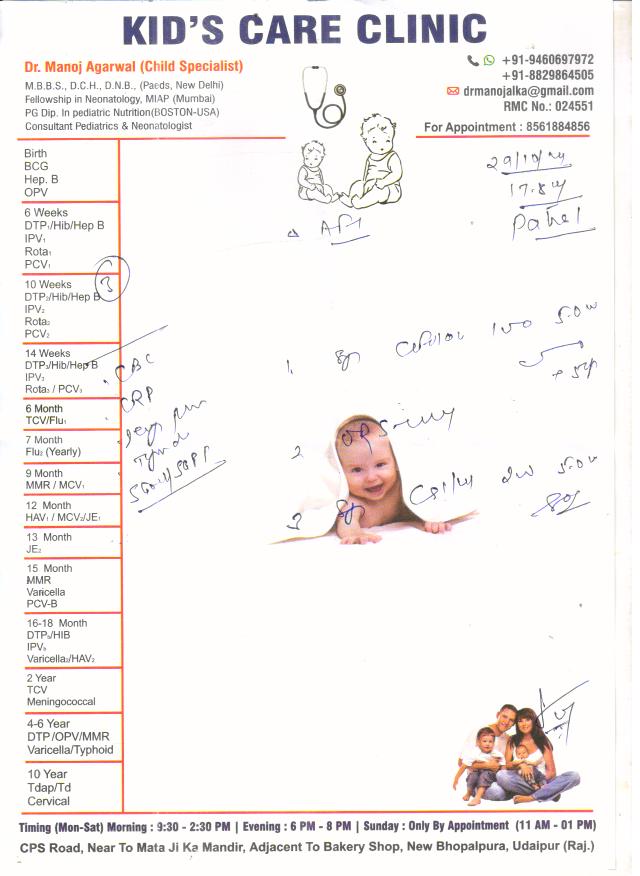 KID'S CARE CLINIC
Dr. Manoj Agarwal (Child Specialist)
M.B.B.S., D.C.H., D.N.B., (Paeds, New Delhi)
Fellowship in Neonatology, MIAP (Mumbai)
PG Dip. In pediatric Nutrition(BOSTON-USA)
Consultant Pediatrics & Neonatologist
+91-9460697972
+91-8829864505
drmanojalka@gmail.com
RMC No.: 024551
For Appointment : 8561884856
Birth
BCG
Hep. B
OPV
6 Weeks
DTP₁/Hib/Hep B
IPV₁
Rota₁
PCV₁
10 Weeks
DTP₂/Hib/Hep B
IPV₂
Rota₂
PCV₂
3
14 Weeks
DTP₃/Hib/Hep B
IPV₃
Rota₃ / PCV₃
6 Month
TCV/Flu₁
7 Month
Flu₂ (Yearly)
9 Month
MMR / MCV₁
12 Month
HAV₁ / MCV₂/JE₁
13 Month
JE₂
15 Month
MMR
Varicella
PCV-B
16-18 Month
DTP₅/HIB
IPV₅
Varicella₂/HAV₂
2 Year
TCV
Meningococcal
4-6 Year
DTP/OPV/MMR
Varicella/Typhoid
10 Year
Tdap/Td
Cervical
Patel
CBC
CRP
1.
5.0
2
ORS
3
5.0
Timing (Mon-Sat) Morning : 9:30 - 2:30 PM | Evening : 6 PM - 8 PM | Sunday : Only By Appointment (11 AM - 01 PM)
CPS Road, Near To Mata Ji Ka Mandir, Adjacent To Bakery Shop, New Bhopalpura, Udaipur (Raj.)